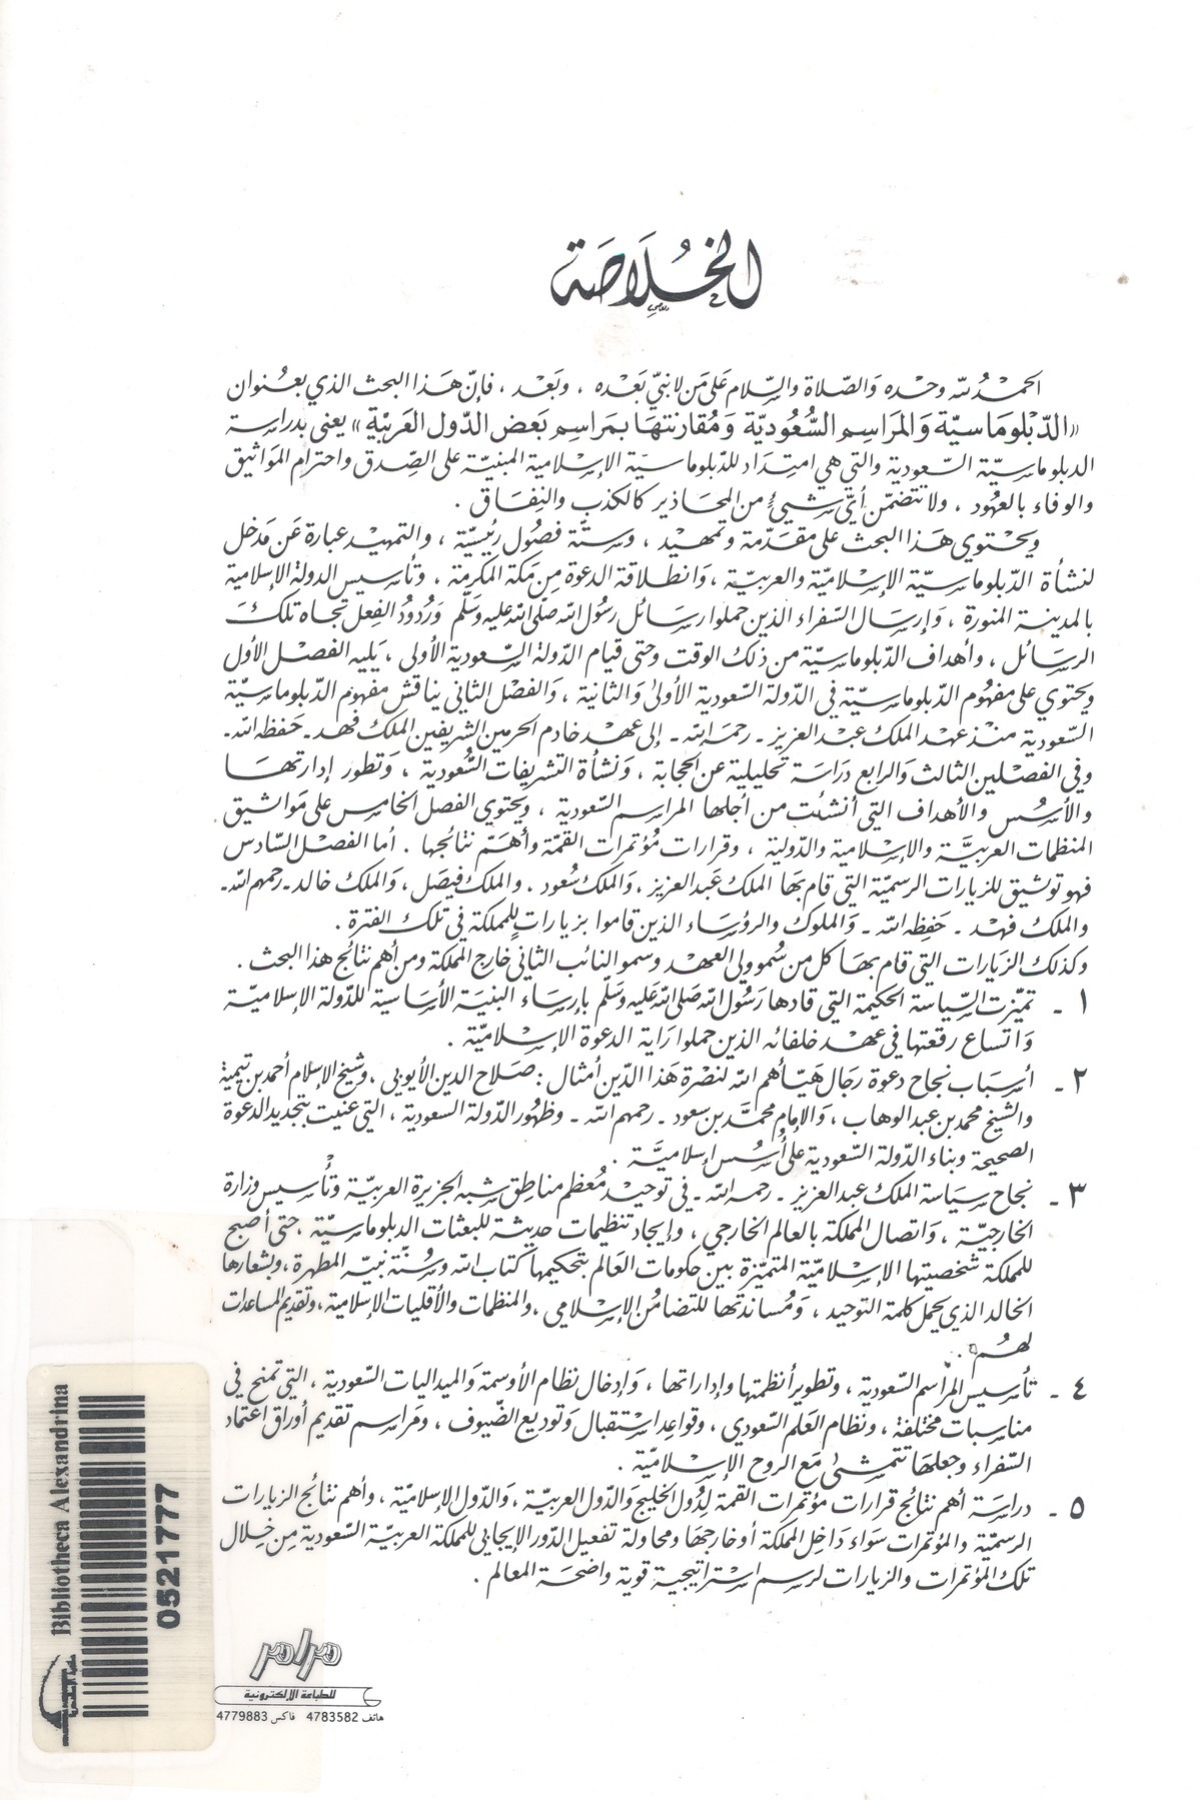 الخُلَاصَة
الحمدُ للّه وحده وَالصّلاة والسِّلام عَلى مَن لانبيّ بَعْده ، وبَعْد ، فإنّ هَذا البحث الذي بعُنوان
«الدّبْلومَاسيّة وَالمَراسِم السُّعُوديّة وَمُقارنتهَا بمَراسِم بَعض الدّول العَربيّة» يعنى بدراسة
الدبلوماسيّة السّعودية والتي هي امتِدَاد للدّبلوماسيّة الإسْلامية المبنيّة على الصِّدق واحترام المَواثيق
والوفاء بالعهُود ، ولاتتضمّن أيّ شيءٍ من المحَاذير كالكذب والنِفَاق .
ويحْتوي هَذا البحث على مقدّمة وتمهيد ، وستّة فصُول رئيسيّة ، والتمهيد عبارة عَن مَدخل
لنشأة الدّبلوماسيّة الإسْلاميّة والعربيّة ، وَانطلاقة الدعوة مِن مَكة المكرمة ، وتأسيس الدولة الإسلامية
بالمدينة المنورة ، وَإرسَال السّفراء الذين حملوا رسَائل رسُول اللّه صَلّى اللّه عليه وسَلّم وَرُدودُ الفِعل تجاه تلكَ
الرسَائل ، وأهداف الدّبلوماسيّة من ذلك الوقت وحتى قيام الدّولة السّعودية الأولى ، يَليه الفَصل الأول
ويحتوي على مفهُوم الدّبلوماسيّة في الدّولة السّعودية الأولىٰ وَالثانية ، وَالفصْل الثاني يناقش مفهوم الدّبلوماسيّة
السّعودية منذ عهد الملك عبد العزيز ـ رحمَه اللّه ـ إلى عهد خادم الحرمين الشريفين الملك فهد ـ حَفظه اللّه ـ
وفي الفصْلين الثالث وَالرابع دراسَة تحليلية عن الحجَابة ، وَنشأة التشريفات السُّعودية ، وَتطور إدارتهَا
والأسُس والأهداف التي أنشئت من أجلها المراسم السّعودية ، ويحتوي الفصل الخامس على مَواثيق
المنظمات العربيَّة والإسْلامية والدّولية ، وقرارات مُؤتمرات القمّة وأهَمّ نتائجها . أما الفصْل السَّادس
فهو توثيق للزيارات الرسميّة التي قام بهَا الملك عَبد العزيز ، وَالملك سُعود ، وَالملك فيصَل ، وَالملك خالد ـ رحمهم اللّه ـ
والملك فهْد ـ حَفِظه اللّه ـ وَالملوك والرؤسَاء الذين قاموا بزياراتٍ للمملكة في تلك الفترة .
وكذلك الزيارات التي قام بهَا كل من سُمو ولي العهد وسمو النائب الثاني خارج المملكة ومن أهم نتائج هذا البحث .
١ ـ تميّزت السِّياسة الحكيمة التي قادها رَسُول اللّه صَلى اللّه عَليه وسَلّم بإرسَاء البنيَة الأساسية للدّولة الإسْلاميّة
وَاتساع رقعتها في عهد خلفائه الذين حملوا رَاية الدعوة الإسْلاميّة .
٢ ـ أسبَاب نجاح دعوة رجَال هَيّأهم اللّه لنصْرة هَذا الدّين أمثال : صَلاح الدين الأيوبي ، وشيخ الإسْلام أحمد بن تيميّة
والشيخ محمد بن عبد الوهاب ، وَالإمام محمَّد بن سعود ـ رحمهم اللّه ـ وظهُور الدّولة السعودية ، التي عنيت بتجديد الدعوة
الصحيحة وبناء الدّولة السّعودية على أُسُس إسْلاميَّة .
٣ ـ نجاح سيَاسة الملك عبد العزيز ـ رحمه اللّه ـ في توحيد مُعظم مناطق شبه الجزيرة العربيّة وتأسيس وزارة
الخارجيّة ، وَاتصال المملكة بالعالم الخارجي ، وإيجاد تنظيمات حديثة للبعثات الدبلوماسيّة ، حتى أصبح
للمملكة شخصيتها الإسْلاميّة المتميّزة بين حكومات العَالم بتحكيمها كتاب اللّه وسُنّة نبيّه المطهرة ، وبشعارها
الخالد الذي يحمل كلمة التوحيد ، وَمُساندتها للتضامُن الإسْلامي ، والمنظمات والأقليات الإسْلامية ، وتقديم المساعدات
لهُم .
٤ ـ تأسيس المراسم السّعودية ، وتطوير أنظمتها وإداراتها ، وَإدخال نظام الأوسمة وَالميداليات السّعودية ، التي تمنح في
مناسبات مختلفة ، ونظام العَلم السّعودي ، وقواعد اسْتقبال وَتوديع الضّيوف ، ومَراسم تقديم أوراق اعتماد
السّفراء وجعلهَا تتمشىٰ مَع الروح الإسْلاميّة .
٥ ـ دراسَة أهم نتائج قرارات مُؤتمرات القمة لِدُول الخليج وَالدّول العربيّة ، وَالدّول الإسْلاميّة ، وأهم نتائج الزيارات
الرسميّة والمُؤتمرات سَوَاء دَاخِل المملكة أو خارجهَا ومحاولة تفعيل الدّور الإيجابي للمملكة العربيّة السّعودية مِن خِلال
تلك المؤتمرات والزيارات لرسم اسْتراتيجية قوية وَاضحَة المعالم .
مرامر
للطباعة الإلكترونية
هاتف 4783582 فاكس 4779883
Bibliotheca Alexandrina
0521777
مكتبة الإسكندرية